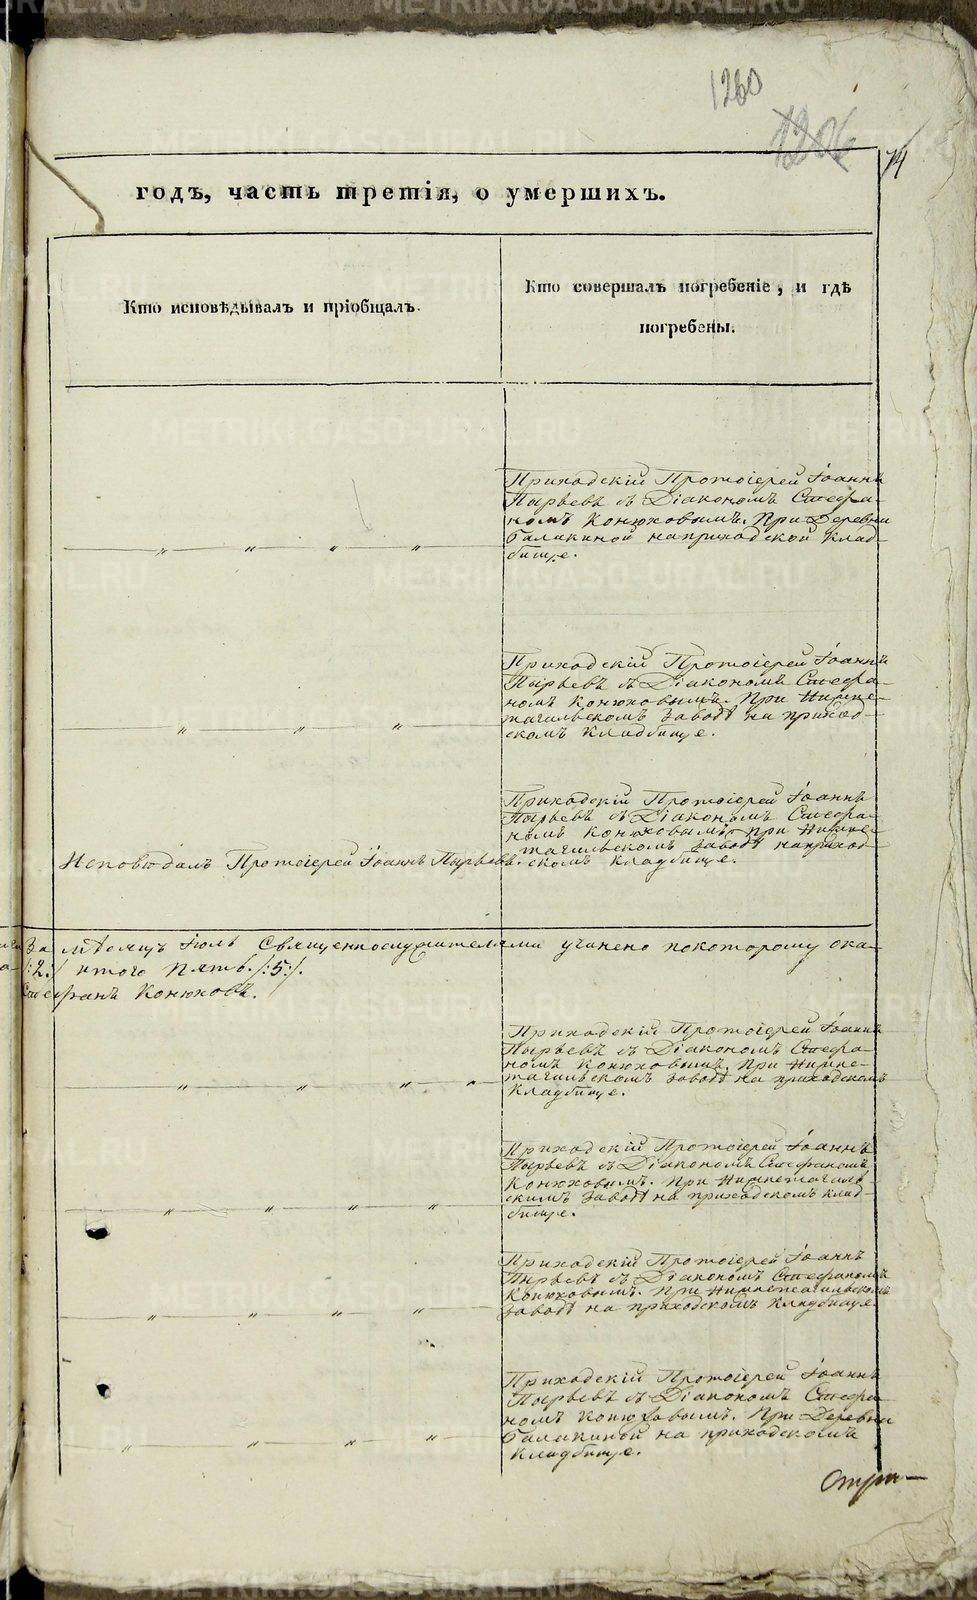 1260
1206
74
годъ, часть третія, о умершихъ.
Кто исповѣдывалъ и пріобщалъ.
Кто совершалъ погребеніе, и гдѣ
погребены.
Приходскій Протоіерей Іоаннъ
Пырьевъ съ Діакономъ Стефа-
номъ Конюховымъ. При Деревни
Балакиной на приходской клад-
бище.
Приходскій Протоіерей Іоаннъ
Пырьевъ съ Діакономъ Стефа-
номъ Конюховымъ. При Нижне-
тагильскомъ заводѣ на приход-
скомъ кладбище.
Приходскій Протоіерей Іоаннъ
Пырьевъ съ Діакономъ Стефа-
номъ Конюховымъ при Нижне-
тагильскомъ заводѣ на приход-
скомъ кладбище.
Исповѣдалъ Протоіерей Іоаннъ Пырьевъ.
За мѣсяцъ Іюль Священнослужителями учинено по которому ока-
/:2:/ итого пять /:5:/.
Стефанъ Конюховъ.
Приходскій Протоіерей Іоаннъ
Пырьевъ съ Діакономъ Стефа-
номъ Конюховымъ. При Нижне-
тагильскомъ заводѣ на приходскомъ
кладбище.
Приходскій Протоіерей Іоаннъ
Пырьевъ съ Діакономъ Стефаномъ
Конюховымъ. При Нижнетагиль-
скимъ заводѣ на приходскомъ клад-
бище.
Приходскій Протоіерей Іоаннъ
Пырьевъ съ Діакономъ Стефаномъ
Конюховымъ. При Нижнетагильскомъ
заводѣ на приходскомъ кладбище.
Приходскій Протоіерей Іоаннъ
Пырьевъ съ Діакономъ Стефа-
номъ Конюховымъ. При Деревни
Балакиной на приходскомъ
кладбище.
METRIKI.GASO-URAL.RU